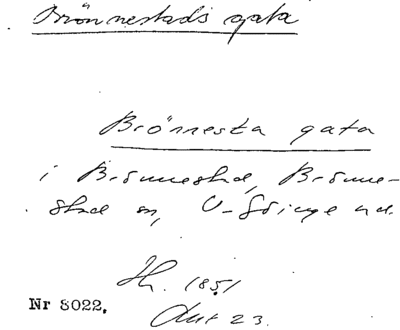 Brönnestads gata
Brönnesta gata
i Brönnestad, Brönne-
stad sn, V-Göinge hd.
Hl. 1851
Nr 8022.
Akt 23.